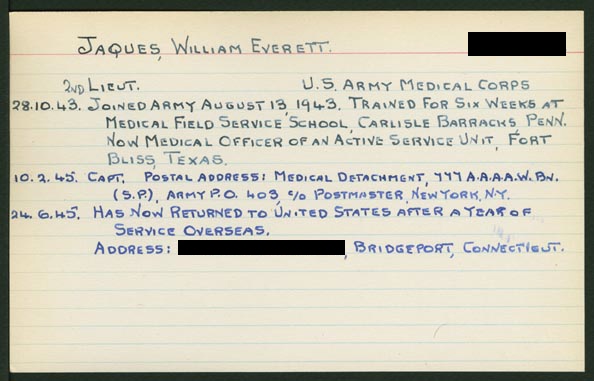 Jaques, William Everett.
2nd Lieut. U.S. Army Medical Corps
28.10.43. Joined Army August 13, 1943. Trained for Six Weeks at
Medical Field Service School, Carlisle Barracks Penn.
Now Medical Officer of an Active Service Unit, Fort
Bliss, Texas.
10.2.45. Capt. Postal Address: Medical Detachment, 777 A.A.A.A.W. Bn.
(S.P.), Army P.O. 403, c/o Postmaster, New York, N.Y.
24.6.45. Has now Returned to United States after a year of
Service Overseas.
Address: , Bridgeport, Connecticut.